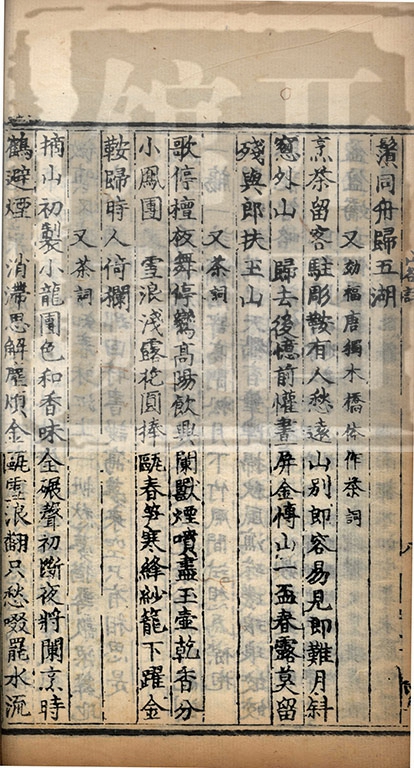 鬢同舟歸五湖
又 効福唐獨木橋体作茶詞
烹茶留客駐彫鞍有人愁遠山別郎容易見郎難月斜
窓外山 歸去後憶前懽畫屏金博山一盃春露莫留
殘與郎扶玉山
又 茶詞
歌停檀板舞停鸞高陽飲興闌獸煙噴盡玉壺乾香分
小鳳團 雪浪淺露花圓捧甌春笋寒絳紗籠下躍金
鞍歸時人倚欄
又 茶詞
摘山初製小龍團色和香味全碾聲初斷夜將闌烹時
鶴避煙 消滯思解塵煩金甌雪浪翻只愁啜罷水流